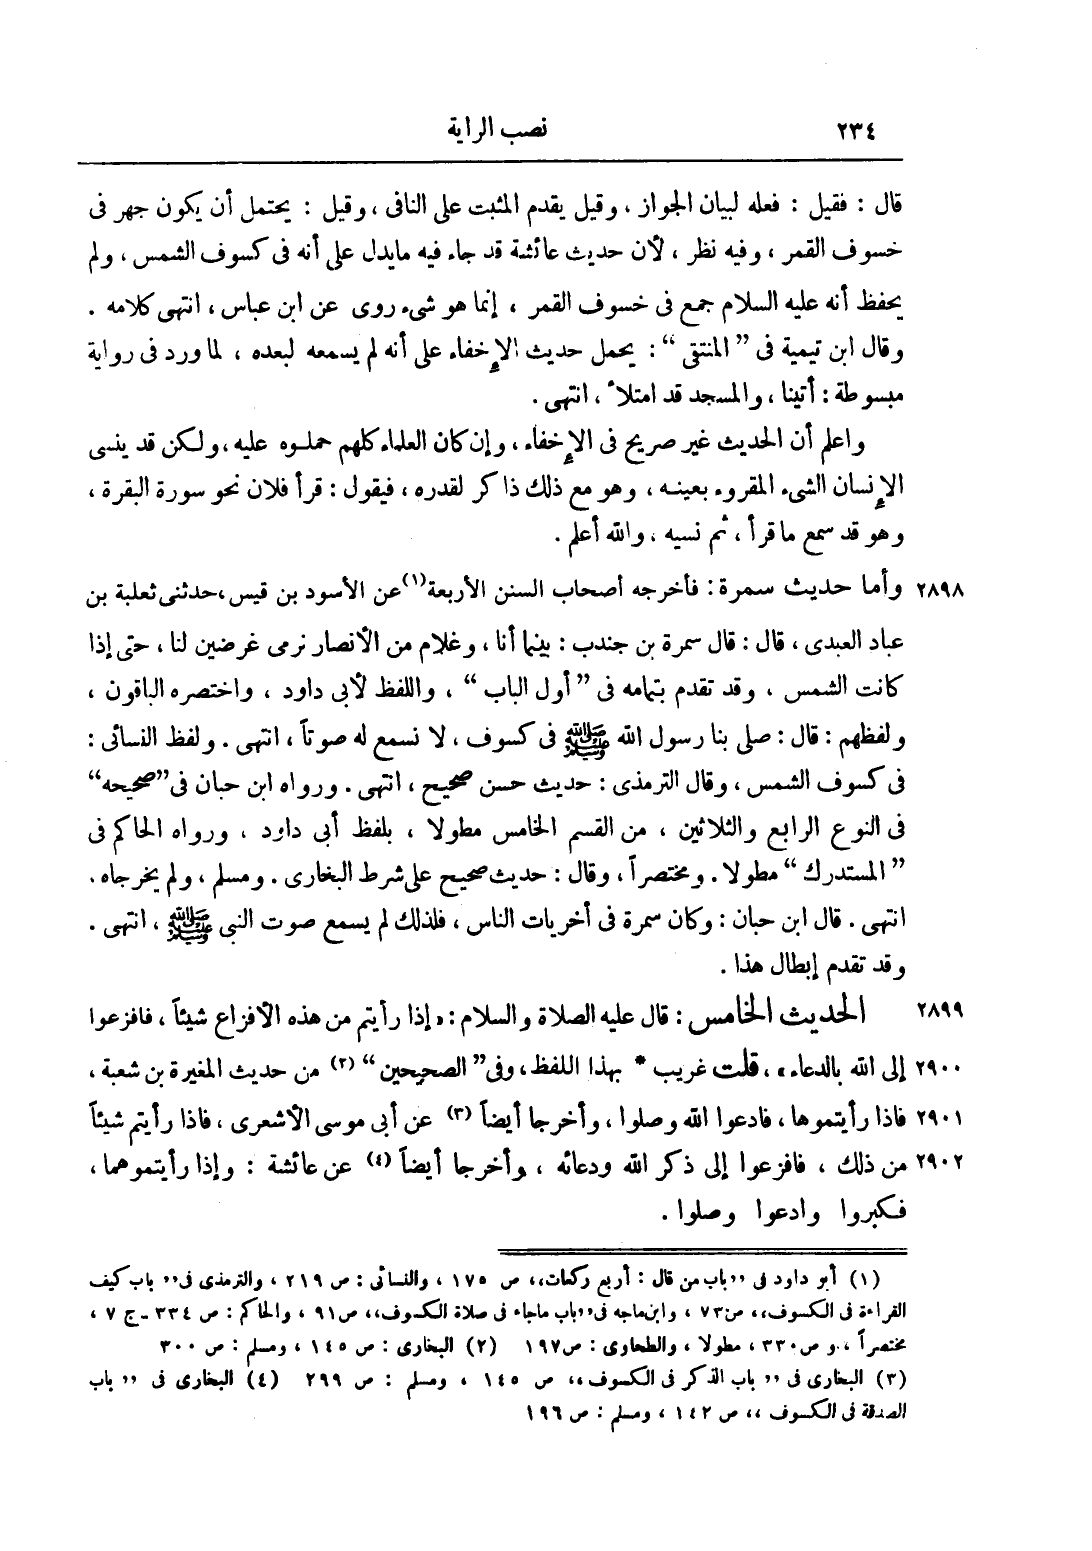 ٢٣٤ نصب الراية
قال : فقيل : فعله لبيان الجواز ، وقيل يقدم المثبت على النافى ، وقيل : يحتمل أن يكون جهر فى
خسوف القمر ، وفيه نظر ، لأن حديث عائشة قد جاء فيه مايدل على أنه فى كسوف الشمس ، ولم
يحفظ أنه عليه السلام جمع فى خسوف القمر ، إنما هو شىء روى عن ابن عباس ، انتهى كلامه .
وقال ابن تيمية فى " المنتقى " : يحمل حديث الإخفاء على أنه لم يسمعه لبعده ، لما ورد فى رواية
مبسوطة : أتينا ، والمسجد قد امتلأ ، انتهى .
واعلم أن الحديث غير صريح فى الإخفاء ، وإن كان العلماء كلهم حملوه عليه ، ولكن قد ينسى
الإنسان الشىء المقروء بعينه ، وهو مع ذلك ذاكر لقدره ، فيقول : قرأ فلان نحو سورة البقرة ،
وهو قد سمع ما قرأ ، ثم نسيه ، والله أعلم .
٢٨٩٨ وأما حديث سمرة : فأخرجه أصحاب السنن الأربعة (١) عن الأسود بن قيس ، حدثنى ثعلبة بن
عباد العبدى ، قال : قال سمرة بن جندب : بينما أنا ، وغلام من الأنصار نرمى غرضين لنا ، حتى إذا
كانت الشمس ، وقد تقدم بتمامه فى " أول الباب " ، واللفظ لأبى داود ، واختصره الباقون ،
ولفظهم : قال : صلى بنا رسول الله ﷺ فى كسوف ، لا نسمع له صوتاً ، انتهى . ولفظ النسائى :
فى كسوف الشمس ، وقال الترمذى : حديث حسن صحيح ، انتهى . ورواه ابن حبان فى " صحيحه "
فى النوع الرابع والثلاثين ، من القسم الخامس مطولا ، بلفظ أبى داود ، ورواه الحاكم فى
" المستدرك " مطولا . ومختصراً ، وقال : حديث صحيح على شرط البخارى . ومسلم ، ولم يخرجاه .
انتهى . قال ابن حبان : وكان سمرة فى أخريات الناس ، فلذلك لم يسمع صوت النبى ﷺ ، انتهى .
وقد تقدم إبطال هذا .
٢٨٩٩ الحديث الخامس : قال عليه الصلاة والسلام : « إذا رأيتم من هذه الأفزاع شيئاً ، فافزعوا
٢٩٠٠ إلى الله بالدعاء » ، قلت غريب * بهذا اللفظ ، وفى " الصحيحين " (٢) من حديث المغيرة بن شعبة ،
٢٩٠١ فاذا رأيتموها ، فادعوا الله وصلوا ، وأخرجا أيضاً (٣) عن أبى موسى الأشعرى ، فاذا رأيتم شيئاً
٢٩٠٢ من ذلك ، فافزعوا إلى ذكر الله ودعائه ، وأخرجا أيضاً (٤) عن عائشة : وإذا رأيتموهما ،
فكبروا وادعوا وصلوا .
(١) أبو داود فى ,, باب من قال : أربع ركعات ،، ص ١٧٥ ، والنسائى : ص ٢١٩ ، والترمذى فى ,, باب كيف
القراءة فى الكسوف ،، ص ٧٣ ، وابن ماجه فى ,, باب ماجاء فى صلاة الكسوف ،، ص ٩١ ، والحاكم : ص ٣٣٤ ـ ج ٧ ،
مختصراً ، و ص ٣٣٠ ، مطولا ، والطحاوى : ص ١٩٧ (٢) البخارى : ص ١٤٥ ، ومسلم : ص ٣٠٠
(٣) البخارى فى ,, باب الذكر فى الكسوف ،، ص ١٤٥ ، ومسلم : ص ٢٩٩ (٤) البخارى فى ,, باب
الصدقة فى الكسوف ،، ص ١٤٢ ، ومسلم : ص ١٩٦